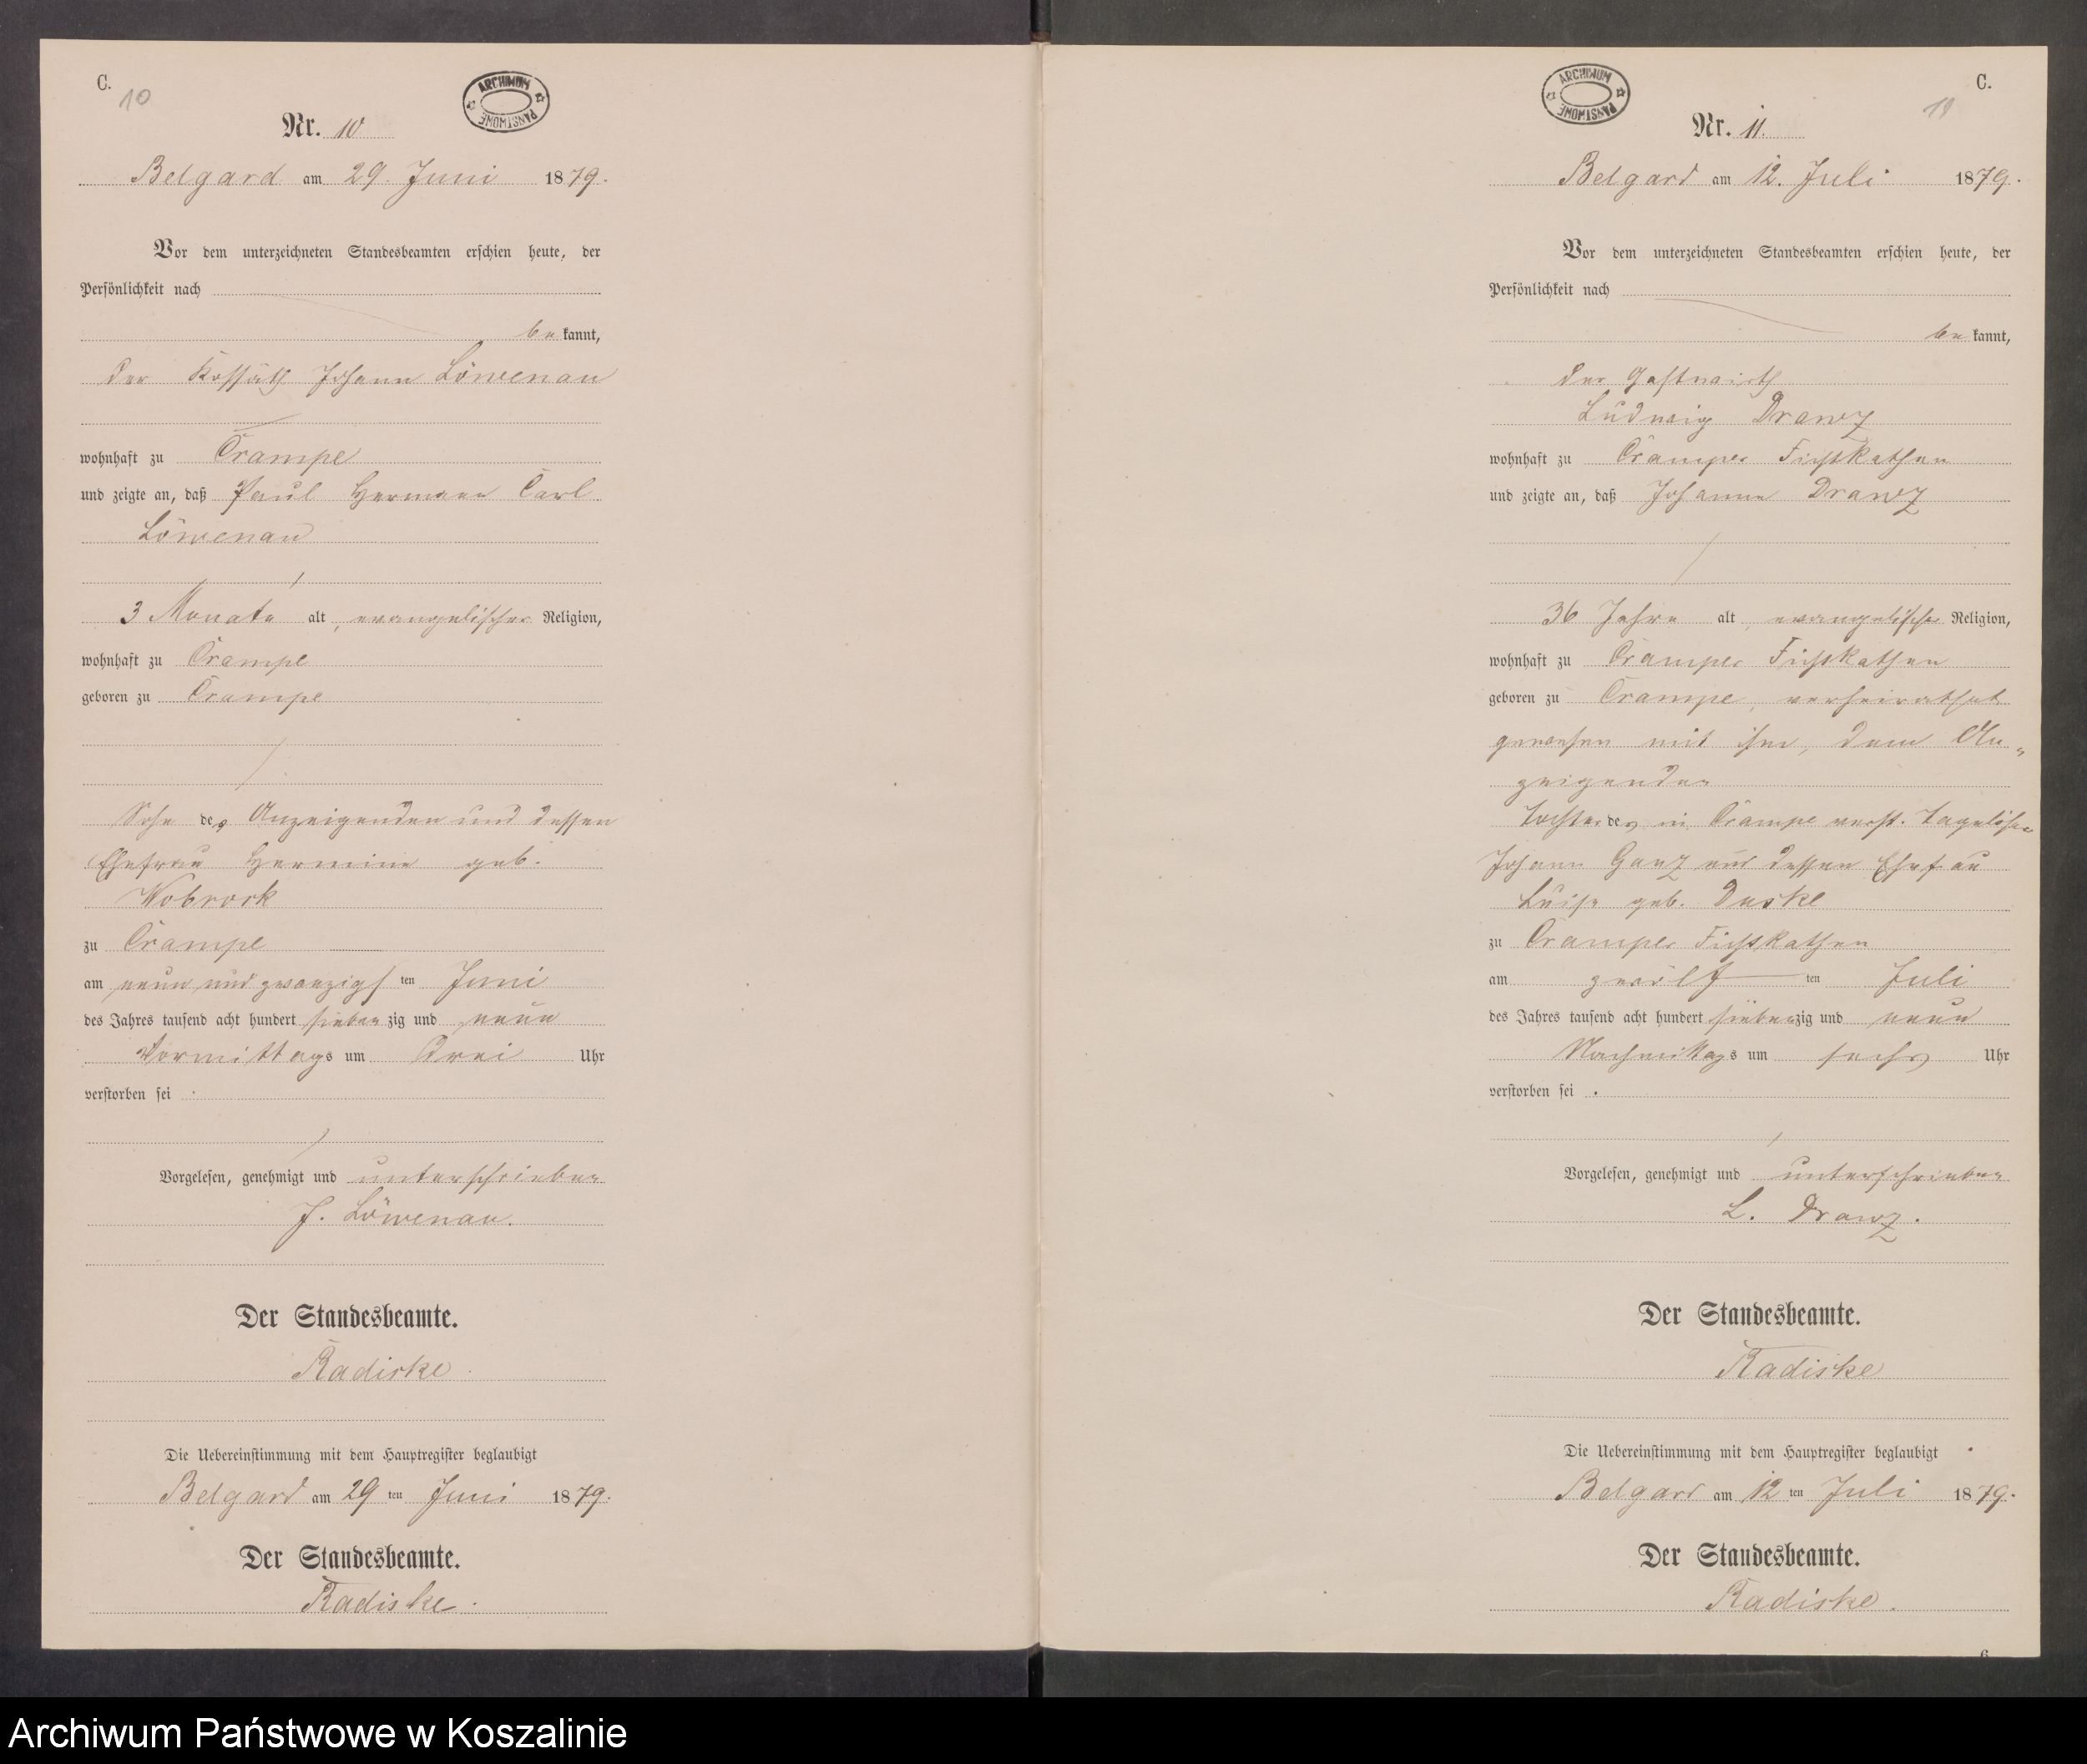 C.
10
ARCHIWUM PAŃSTWOWE
Nr. 10
Belgard am 29. Juni 1879.
Vor dem unterzeichneten Standesbeamten erschien heute, der
Persönlichkeit nach
be kannt,
der Kossäth Johann Löwenau
wohnhaft zu Crampe
und zeigte an, daß Paul Hermann Carl
Löwenau
3 Monate alt, evangelischer Religion,
wohnhaft zu Crampe
geboren zu Crampe
Sohn des Anzeigenden und dessen
Ehefrau Hermine geb.
zu Crampe
am neun und zwanzigsten Juni
des Jahres tausend acht hundert siebenzig und neun
Vormittags um drei Uhr
verstorben sei.
Vorgelesen, genehmigt und unterschrieben
J. Löwenau.
Der Standesbeamte.
Radiske.
Die Uebereinstimmung mit dem Hauptregister beglaubigt
Belgard am 29 ten Juni 1879.
Der Standesbeamte.
Radiske.
C.
11
ARCHIWUM PAŃSTWOWE
Nr. 11.
Belgard am 12. Juli 1879.
Vor dem unterzeichneten Standesbeamten erschien heute, der
Persönlichkeit nach
be kannt,
der Gastwirth
Ludwig Drawz
wohnhaft zu Cramper Fichtkathen
und zeigte an, daß Johanne Drawz
36 Jahre alt, evangelischer Religion,
wohnhaft zu Cramper Fichtkathen
geboren zu Crampe, verheirathet
gewesen mit ihm, dem An„
zeigenden
Tochter des in Crampe verst. Tagelöhner
Johann Ganz und dessen Ehefrau
Luise geb. Daske
zu Cramper Fichtkathen
am zwölf ten Juli
des Jahres tausend acht hundert siebenzig und neun
Nachmittags um sechs Uhr
verstorben sei.
Vorgelesen, genehmigt und unterschrieben
L. Drawz.
Der Standesbeamte.
Radiske
Die Uebereinstimmung mit dem Hauptregister beglaubigt
Belgard am 12 ten Juli 1879.
Der Standesbeamte.
Radiske.
6
Archiwum Państwowe w Koszalinie